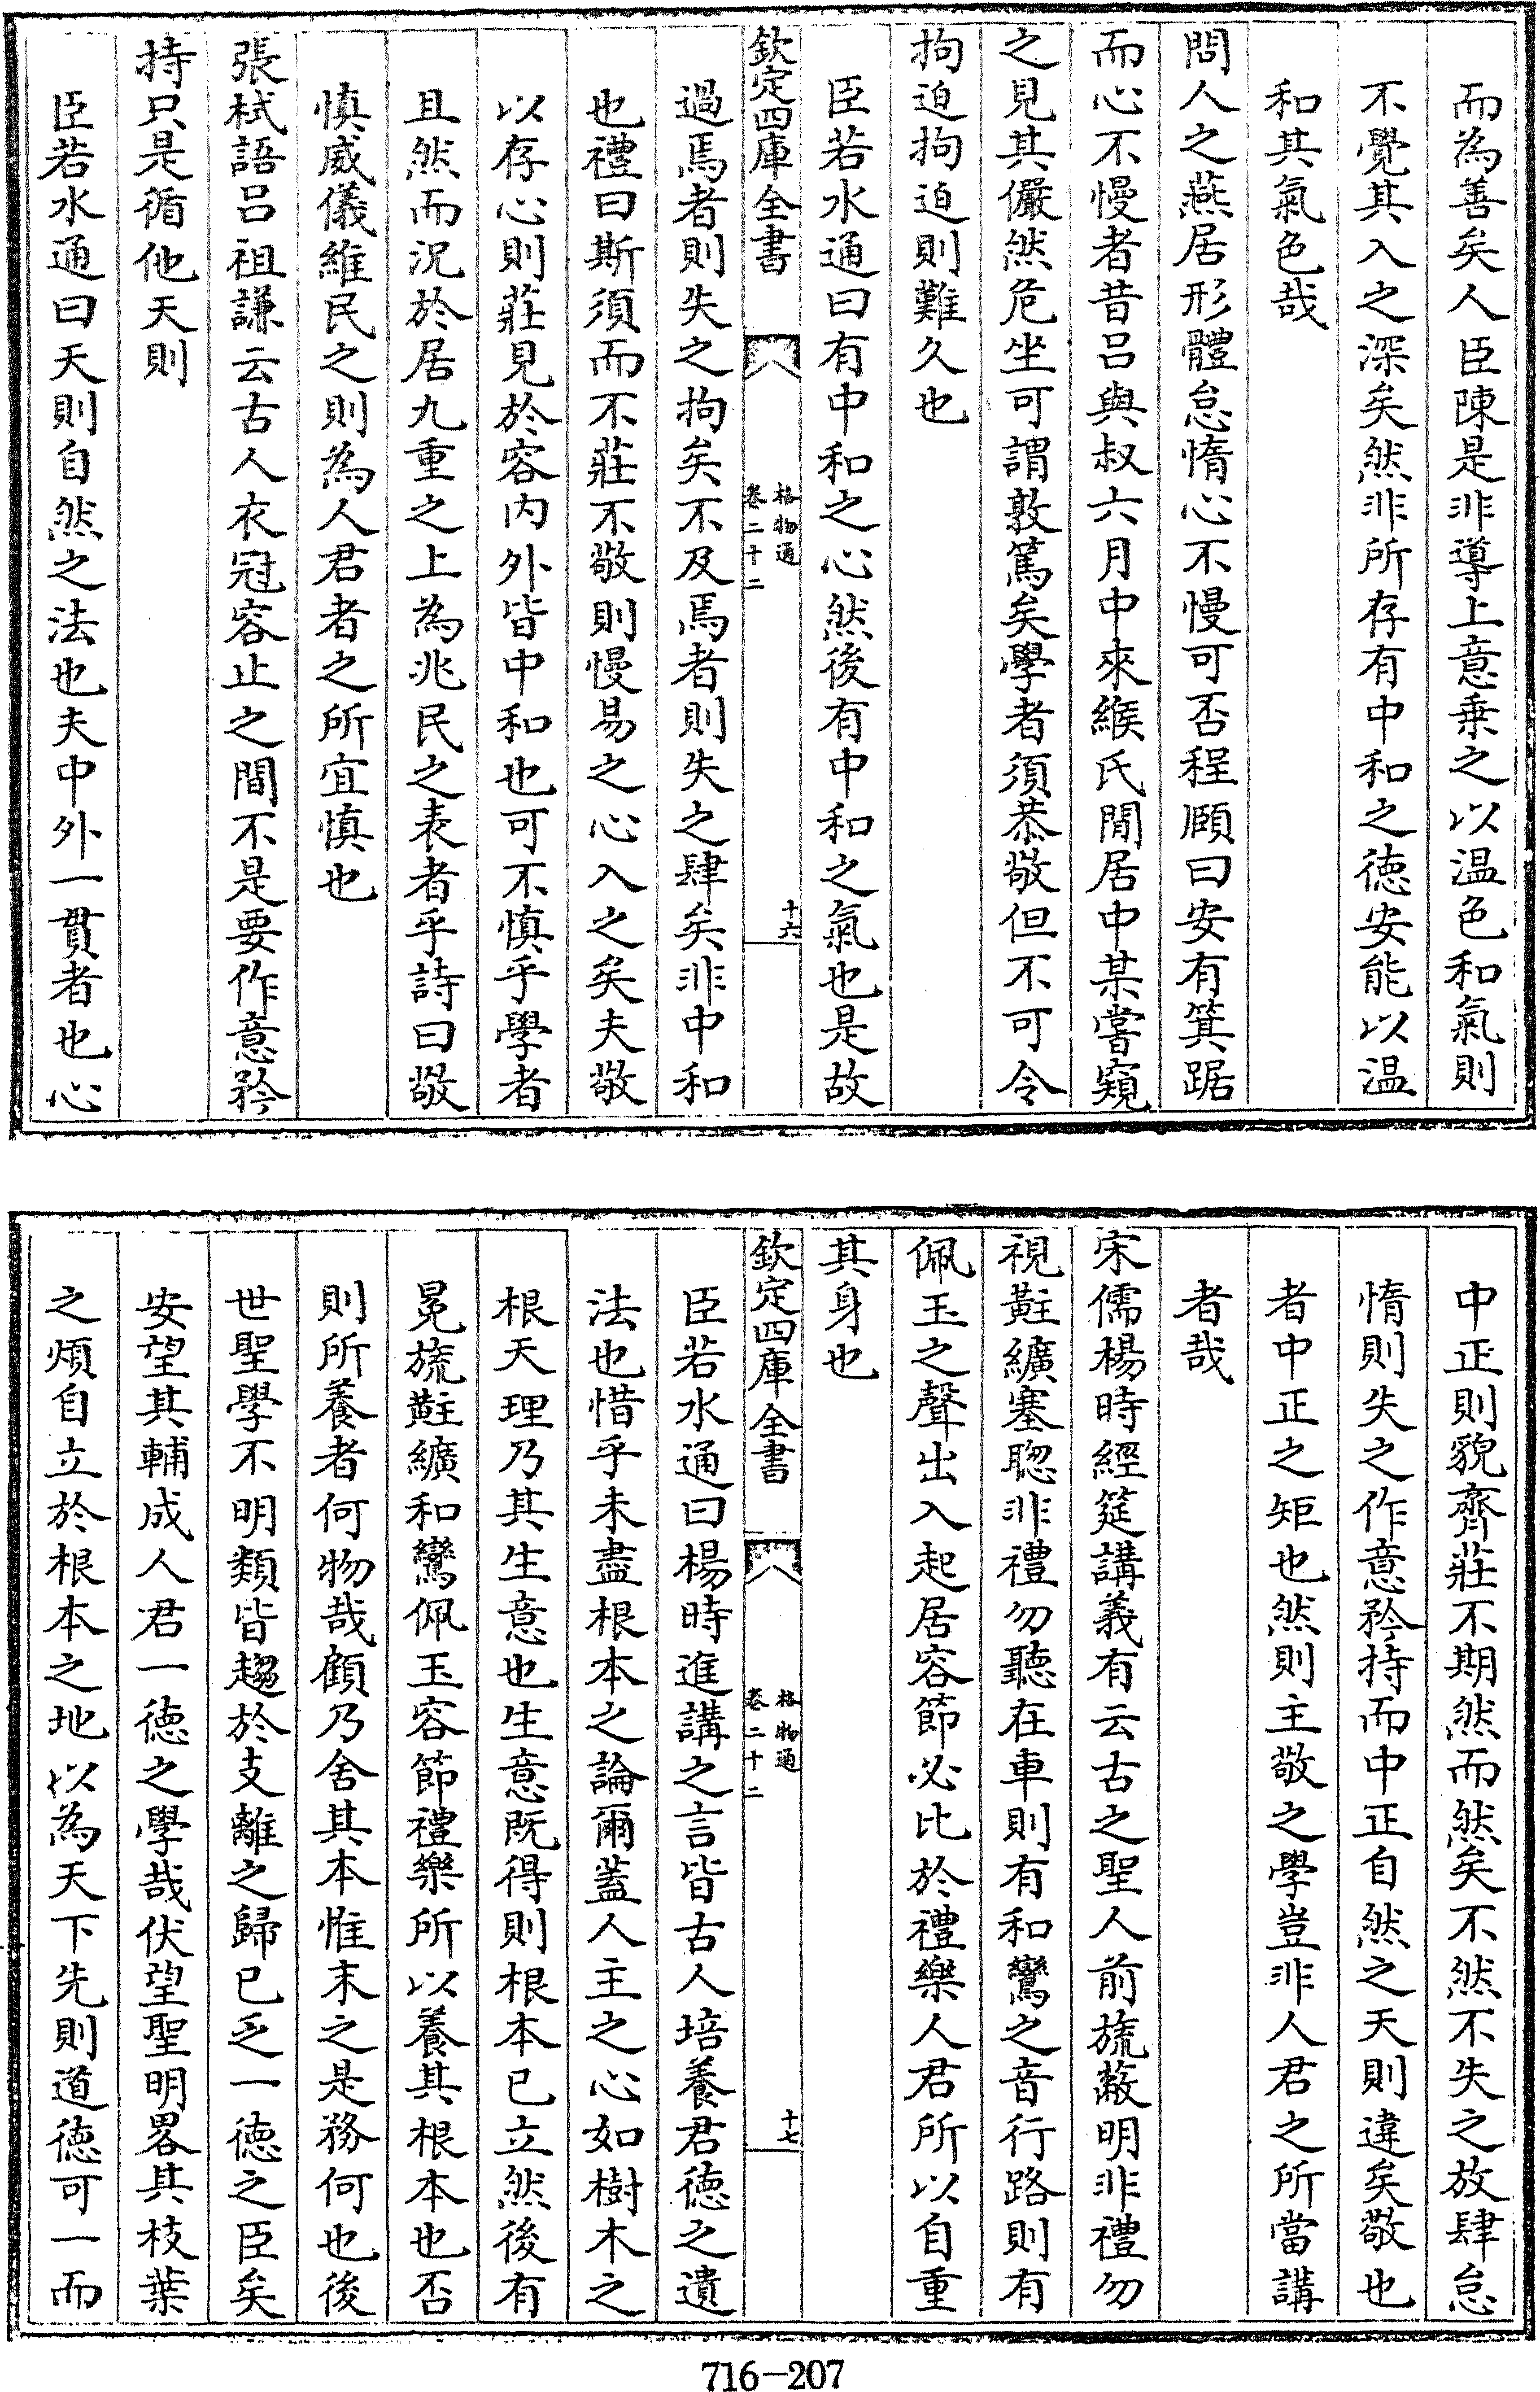 而為善矣人臣陳是非導上意乗之以温色和氣則
不覺其入之深矣然非所存有中和之徳安能以温
和其氣色哉
問人之燕居形體怠惰心不慢可否程頤曰安有箕踞
而心不慢者昔吕與叔六月中來緱氏閒居中某嘗窺
之見其儼然危坐可謂敦篤矣學者須恭敬但不可令
拘迫拘迫則難久也
臣若水通曰有中和之心然後有中和之氣也是故
欽定四庫全書
格物通
卷二十二
十六
過焉者則失之拘矣不及焉者則失之肆矣非中和
也禮曰斯須而不莊不敬則慢易之心入之矣夫敬
以存心則莊見於容内外皆中和也可不慎乎學者
且然而況於居九重之上為兆民之表者乎詩曰敬
慎威儀維民之則為人君者之所宜慎也
張栻語吕祖謙云古人衣冠容止之間不是要作意矜
持只是循他天則
臣若水通曰天則自然之法也夫中外一貫者也心
中正則貌齊莊不期然而然矣不然不失之放肆怠
惰則失之作意矜持而中正自然之天則違矣敬也
者中正之矩也然則主敬之學豈非人君之所當講
者哉
宋儒楊時經筵講義有云古之聖人前旒蔽明非禮勿
視黈纊塞聰非禮勿聽在車則有和鸞之音行路則有
佩玉之聲出入起居容節必比於禮樂人君所以自重
其身也
欽定四庫全書
格物通
卷二十二
十七
臣若水通曰楊時進講之言皆古人培養君徳之遺
法也惜乎未盡根本之論爾蓋人主之心如樹木之
根天理乃其生意也生意既得則根本已立然後有
冕旒黈纊和鸞佩玉容節禮樂所以養其根本也否
則所養者何物哉顧乃舍其本惟末之是務何也後
世聖學不明類皆趨於支離之歸已乏一徳之臣矣
安望其輔成人君一徳之學哉伏望聖明畧其枝葉
之煩自立於根本之地以為天下先則道徳可一而
716-207